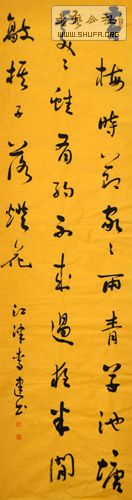 黄梅時節家々雨青草池塘
處々蛙有約不來過夜半閒
敲棋子落燈花 江津李建书
WWW.SHUFA.ORG